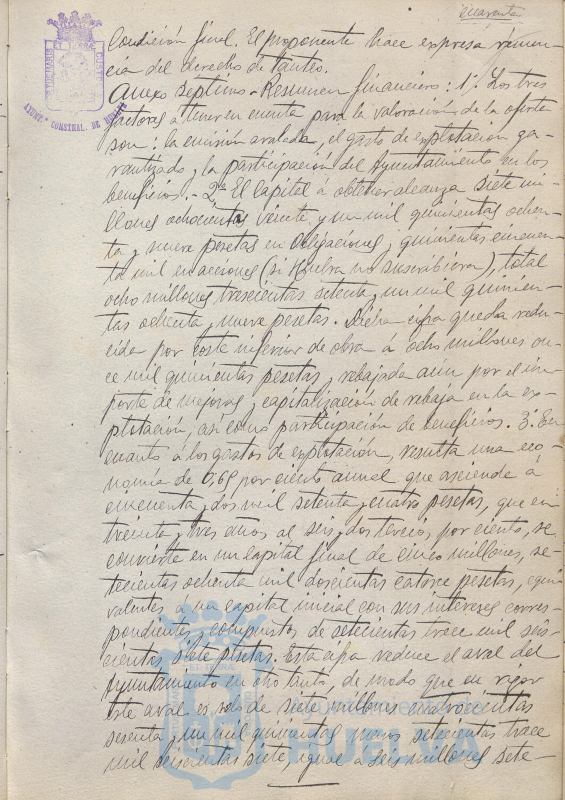 cuarenta
Condición final. El proponente hace expresa renun-
cia del derecho de tanteo.
Anexo séptimo - Resumen financiero: 1º Los tres
factores a tener en cuenta para la valoración de la oferta
son: la emisión avalada, el gasto de explotación ga-
rantizado y la participación del Ayuntamiento en los
beneficios. - 2º El capital á obtener alcanza siete mi-
llones ochocientas veinte y un mil quinientas ochen-
ta y nueve pesetas en obligaciones, y quinientas cincuen-
ta mil en acciones (si Huelva no suscribiera), total
ocho millones trescientas setenta y un mil quinien-
tas ochenta y nueve pesetas. Dicha cifra queda redu-
cida por coste inferior de obra á ocho millones on-
ce mil quinientas pesetas, rebajada aún por el im-
porte de mejoras y capitalización de rebaja en la ex-
plotación, así como participación de beneficios. 3º En
cuanto á los gastos de explotación, resulta una eco-
nomía de 0,69 por ciento anual que asciende á
cincuenta y dos mil setenta y cuatro pesetas, que en
treinta y tres años al seis y dos tercios por ciento, se
convierte en un capital final de cinco millones, se-
tecientas ochenta mil doscientas catorce pesetas, equi-
valentes á un capital inicial con sus intereses corres-
pondientes y compuestos de setecientas trece mil seis-
cientas siete pesetas. Esta cifra reduce el aval del
Ayuntamiento en otro tanto, de modo que en rigor
este aval es solo de siete millones cuatrocientas
sesenta y un mil quinientas menos setecientas trece
mil seiscientas siete, igual a seis millones sete-
AYUNT.º CONSTNAL. DE HUELVA
Ayuntamiento de
HUELVA